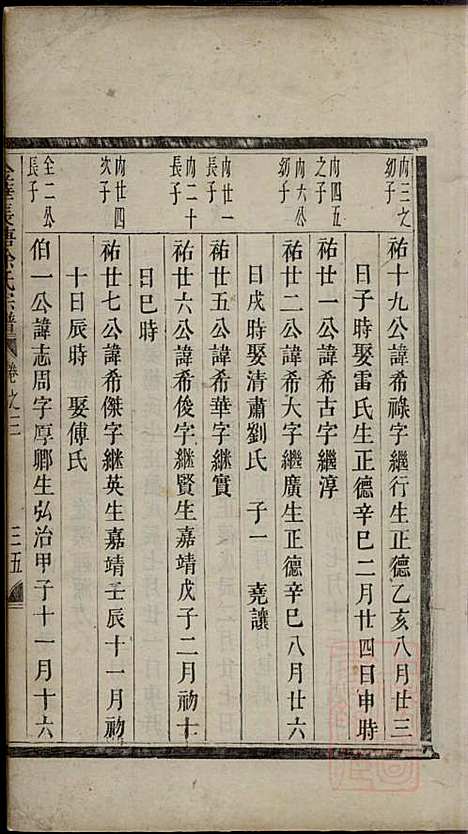 內三之幼子
祐十九公諱希祿字繼行生正德乙亥八月廿三
日子時娶雷氏生正德辛巳二月廿四日申時
內四五之子
祐廿一公諱希古字繼淳
內六公幼子
祐廿二公諱希大字繼廣生正德辛巳八月廿六
日戌時娶清肅劉氏 子一 堯讓
內廿一長子
祐廿五公諱希華字繼實
內二十長子
祐廿六公諱希俊字繼賢生嘉靖戊子二月初十
日巳時
內廿四次子
祐廿七公諱希傑字繼英生嘉靖壬辰十一月初
十日辰時 娶傅氏
全二公長子
伯一公諱志周字厚卿生弘治甲子十一月十六
氏宗譜 卷之三 三五